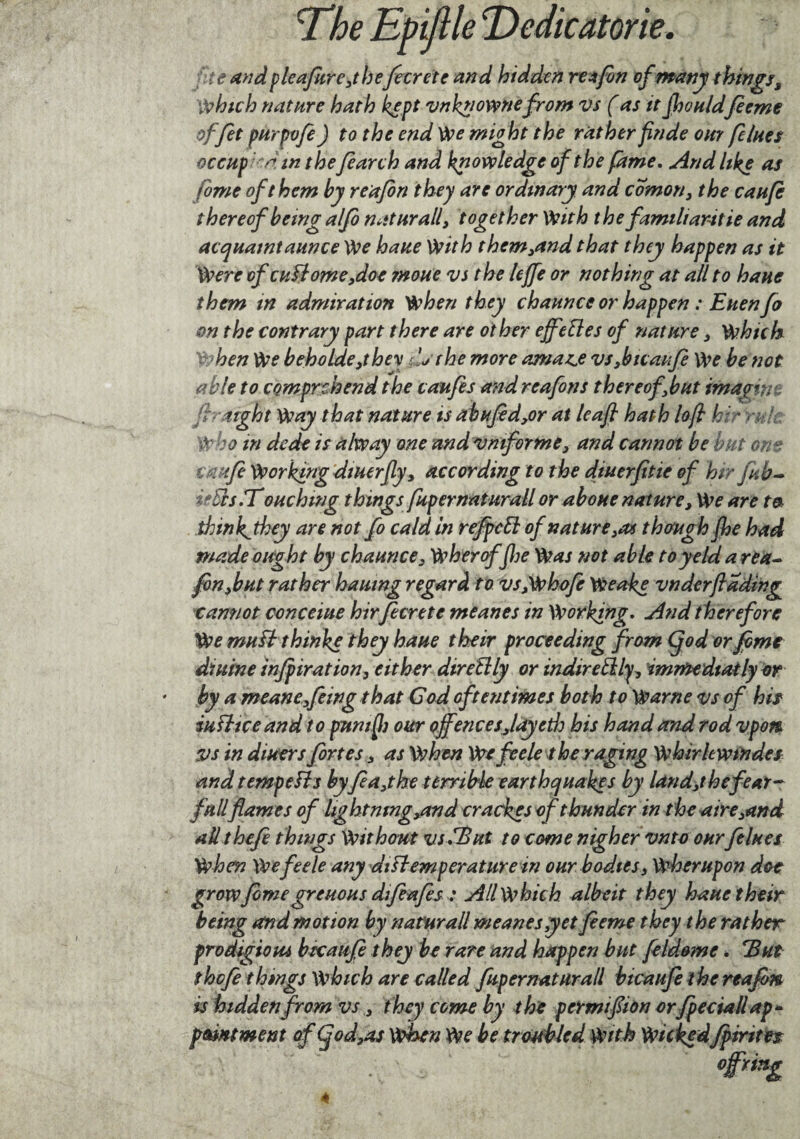 The Epiſtle Dedicatorie.
and pleaſure, the ſecrete and hidden reaſon of many things,
which nature hath kept vnknowne from vs (as it ſhould ſeeme
of ſet purpoſe) to the end we might the rather finde our ſelues
in the ſearch and knowledge of the ſame. And like as
ſome of them by reaſon they are ordinary and cōmon, the cauſe
thereof being alſo naturall, together with the familiaritie and
acquaintaunce we haue with them, and that they happen as it
were of cuſtome, doe moue vs the leſſe or nothing at all to haue
them in admiration when they chaunce or happen : Euen ſo
on the contrary part there are other effectes of nature, which
when we beholde, they do the more amaze vs, bicauſe we be not
able to comprehend the cauſes and reaſons thereof, but imagine
ſtraight way that nature is abuſed, or at leaſt hath loſt hir rule
who in dede is alway one and vniforme, and cannot be but one
cauſe working diuerſly, according to the diuerſitie of hir ſub-
iects. Touching things ſupernaturall or aboue nature, we are to
think they are not ſo cald in reſpect of nature, as though ſhe had
made ought by chaunce, wherof ſhe was not able to yeld a rea-
ſon, but rather hauing regard to vs, whoſe weake vnderſtāding
cannot conceiue hir ſecrete meanes in working. And therefore
we muſt thinke they haue their proceeding from God or ſome
diuine inſpiration, either directly or indirectly, immediatly or
by a meane, ſeing that God oftentimes both to warne vs of his
iuſtice and to puniſh our offences, layeth his hand and rod vpon
vs in diuers ſortes, as when we feele the raging whirlewindes
and tempeſts by ſea, the terrible earthquakes by land, the fear-
full flames of lightning, and crackes of thunder in the aire, and
all theſe things without vs. But to come nigher vnto our ſelues
when we feele any diſtemperature in our bodies, wherupon doe
grow ſome greuous diſeaſes : All which albeit they haue their
being and motion by naturall meanes, yet ſeeme they the rather
prodigious bicauſe they be rare and happen but ſeldome. But
thoſe things which are called ſupernaturall bicauſe the reaſon
is hidden from vs, they come by the permißion or ſpeciall ap-
pointment of God, as when we be troubled with wicked ſpirites
offring